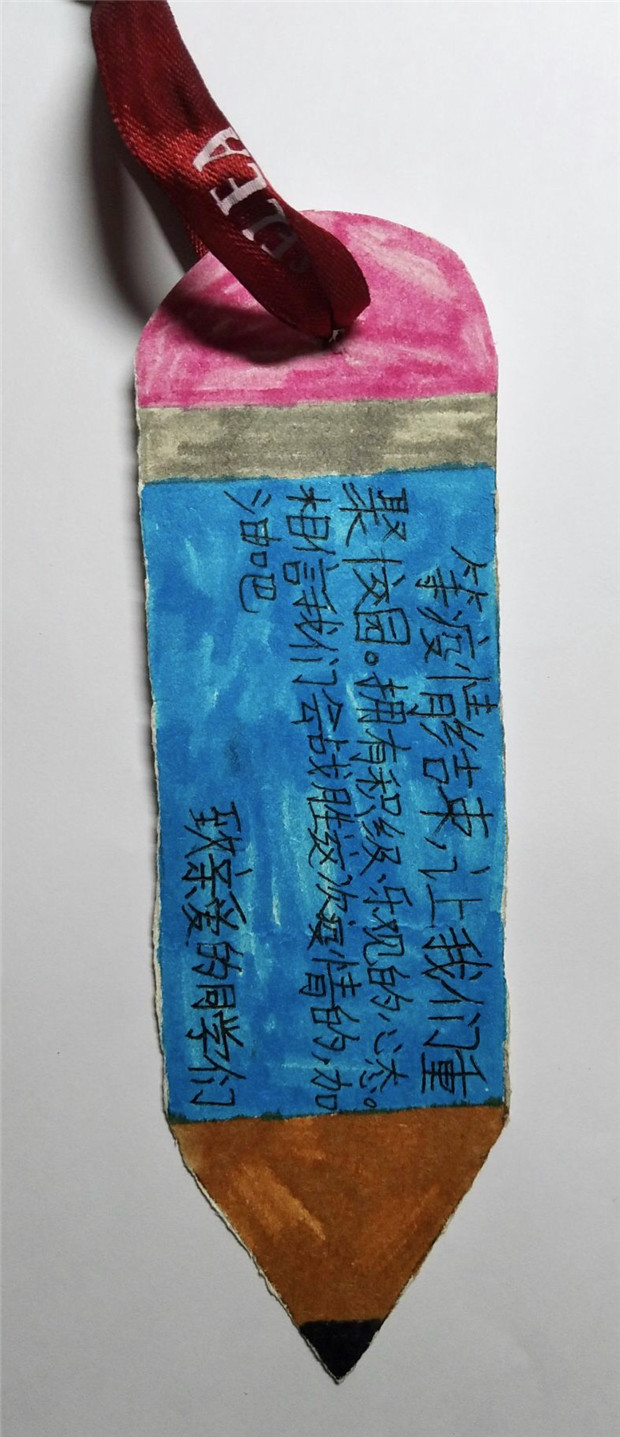 等疫情结束,让我们重
聚校园。拥有积级乐观的心态。
相信我们会战胜这次疫情的,加
油吧
致亲爱的同学们